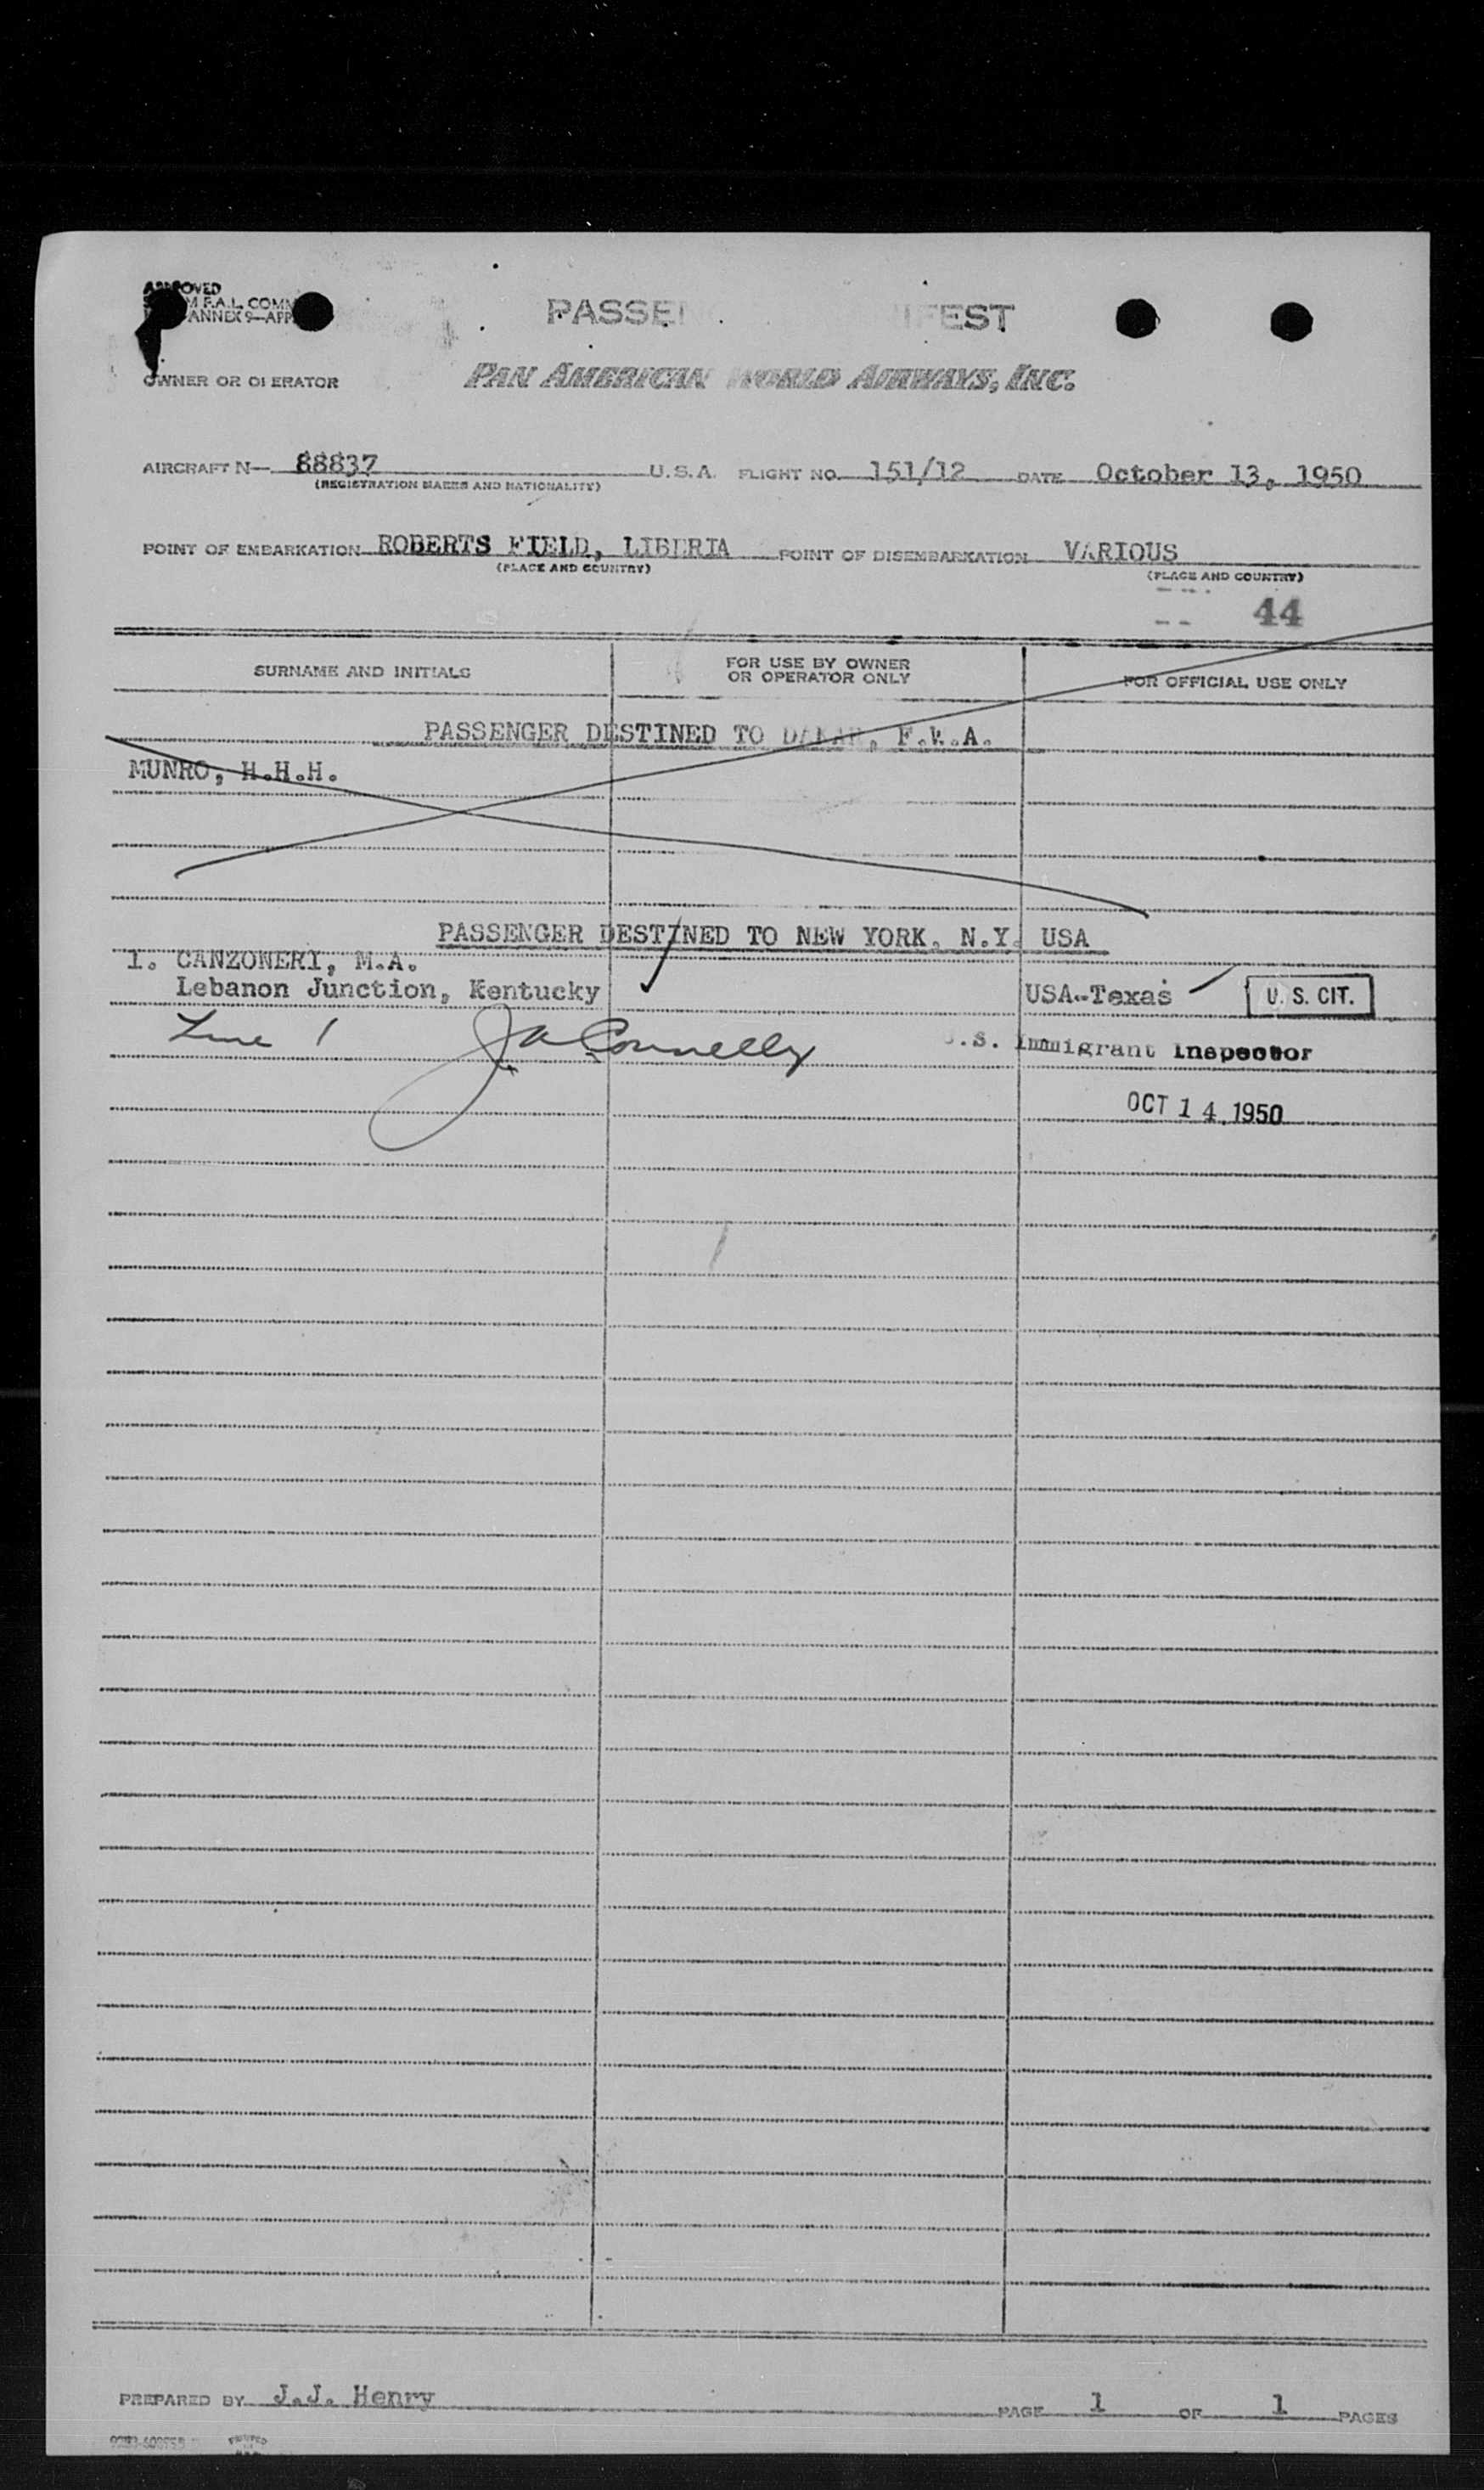 APPROVED
M F.A.L. COMM
ANNEX 9—APP
PASSEN IFEST
OWNER OR OPERATOR PAN AMERICAN WORLD AIRWAYS, INC.
AIRCRAFT N— 88837 U.S.A. FLIGHT NO. 151/12 DATE October 13, 1950
(REGISTRATION MARKS AND NATIONALITY)
POINT OF EMBARKATION ROBERTS FIELD, LIBERIA POINT OF DISEMBARKATION VARIOUS
(PLACE AND COUNTRY) (PLACE AND COUNTRY)
44
SURNAME AND INITIALS FOR USE BY OWNER OR OPERATOR ONLY FOR OFFICIAL USE ONLY
PASSENGER DESTINED TO DAKAR, F.W.A.
MUNRO, H.H.H.
PASSENGER DESTINED TO NEW YORK, N.Y. USA
1. CANZONERI, M.A.
Lebanon Junction, Kentucky USA--Texas U. S. CIT.
Line 1 J A Connelly U.S. Immigrant Inspector
OCT 14 1950
PREPARED BY J.J. Henry PAGE 1 OF 1 PAGES